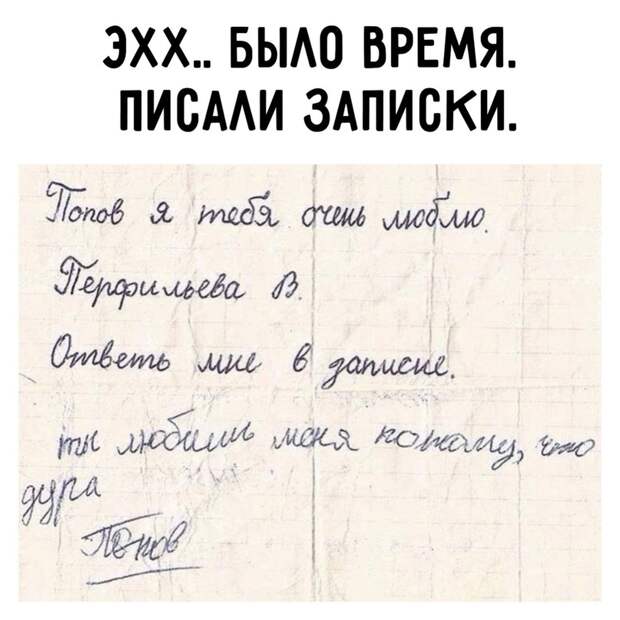 ЭХХ.. БЫЛО ВРЕМЯ.
ПИСАЛИ ЗАПИСКИ.
Попов я тебя очень люблю.
Перфильева В.
Ответь мне в записке.
ты любишь меня потому, что
дура
Попов